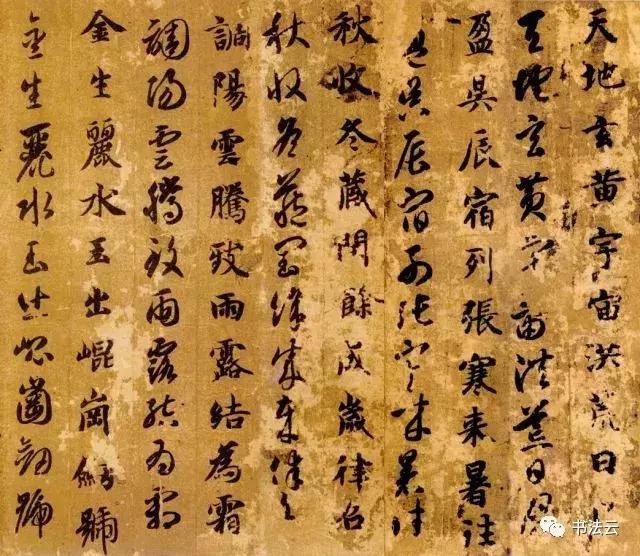 天地玄黄宇宙洪荒日月
天地玄黄宇宙洪荒日月
盈昃辰宿列張寒来暑往
盈昃辰宿列張寒来暑往
秋收冬蔵閏餘成歲律召
秋收冬蔵閏餘成歲律召
調陽雲騰致雨露結為霜
調陽雲騰致雨露結為霜
金生麗水玉出崐崗劒號
金生麗水玉出崐崗劒號
书法云